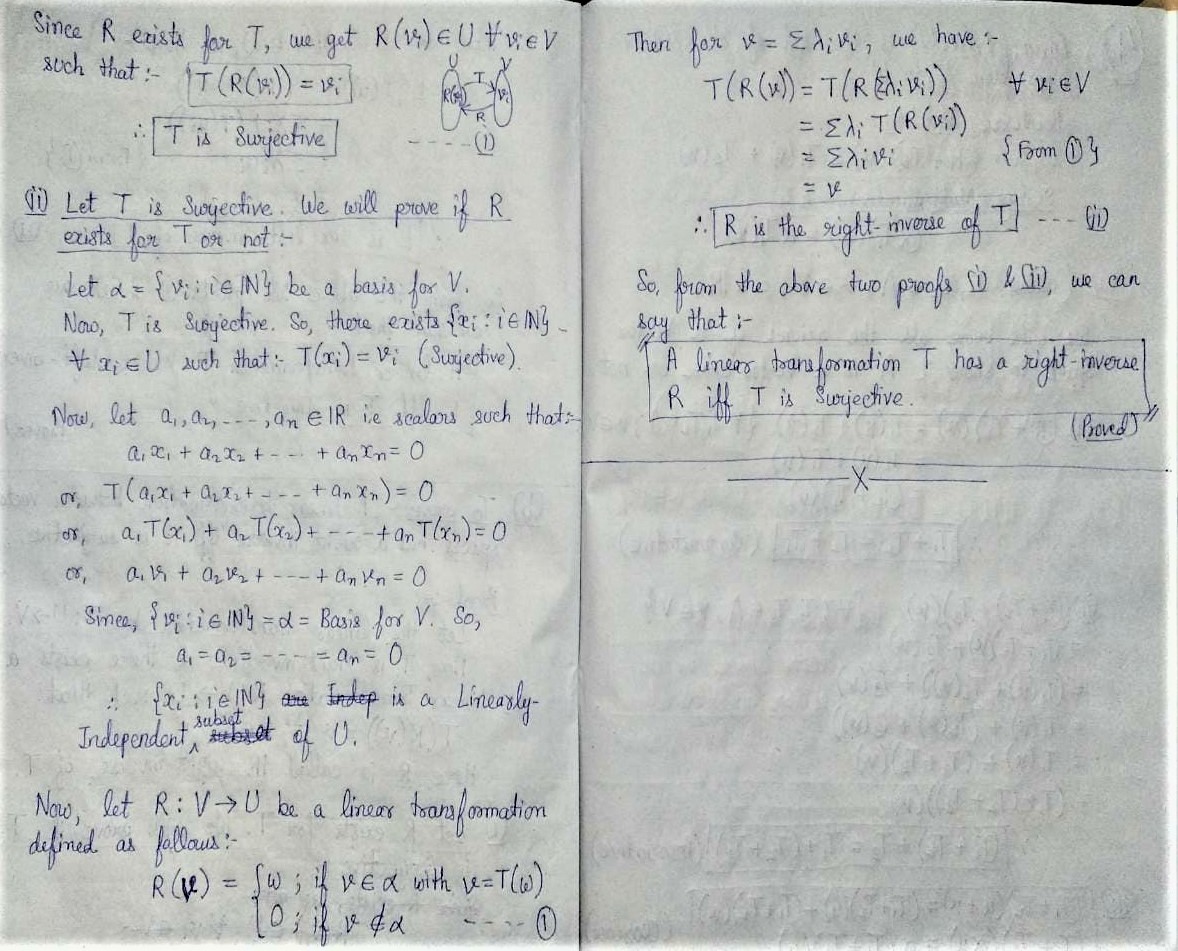 Since R exists for T, we get R(vᵢ) ∈ U ∀ vᵢ ∈ V
such that :- T(R(vᵢ)) = vᵢ
U T V
R(vᵢ) vᵢ
R
∴ T is Surjective ----(i)
(ii) Let T is Surjective. We will prove if R
exists for T or not :-
Let α = {vᵢ : i ∈ IN} be a basis for V.
Now, T is Surjective. So, there exists {xᵢ : i ∈ IN}
∀ xᵢ ∈ U such that :- T(xᵢ) = vᵢ (Surjective).
Now, let a₁, a₂, ---, aₙ ∈ IR i.e scalars such that :-
a₁x₁ + a₂x₂ + --- + aₙxₙ = 0
or, T(a₁x₁ + a₂x₂ + ---- + aₙxₙ) = 0
or, a₁T(x₁) + a₂T(x₂) + --- + aₙT(xₙ) = 0
or, a₁v₁ + a₂v₂ + ---- + aₙvₙ = 0
Since, {vᵢ : i ∈ IN} = α = Basis for V. So,
a₁ = a₂ = ---- = aₙ = 0
∴ {xᵢ : i ∈ IN} are Indep is a Linearly-
Independent subset subset of U.
Now, let R : V → U be a linear transformation
defined as follows :-
R(v) = { w ; if v ∈ α with v = T(w)
0 ; if v ∉ α ---- ①
Then for v = Σλᵢvᵢ, we have :-
T(R(v)) = T(R(Σλᵢvᵢ)) ∀ vᵢ ∈ V
= Σλᵢ T(R(vᵢ))
= Σλᵢvᵢ {From ①}
= v
∴ R is the right-inverse of T ---- (ii)
So, from the above two proofs (i) & (ii), we can
say that :-
"A linear transformation T has a right-inverse
R iff T is Surjective."
(Proved)
X